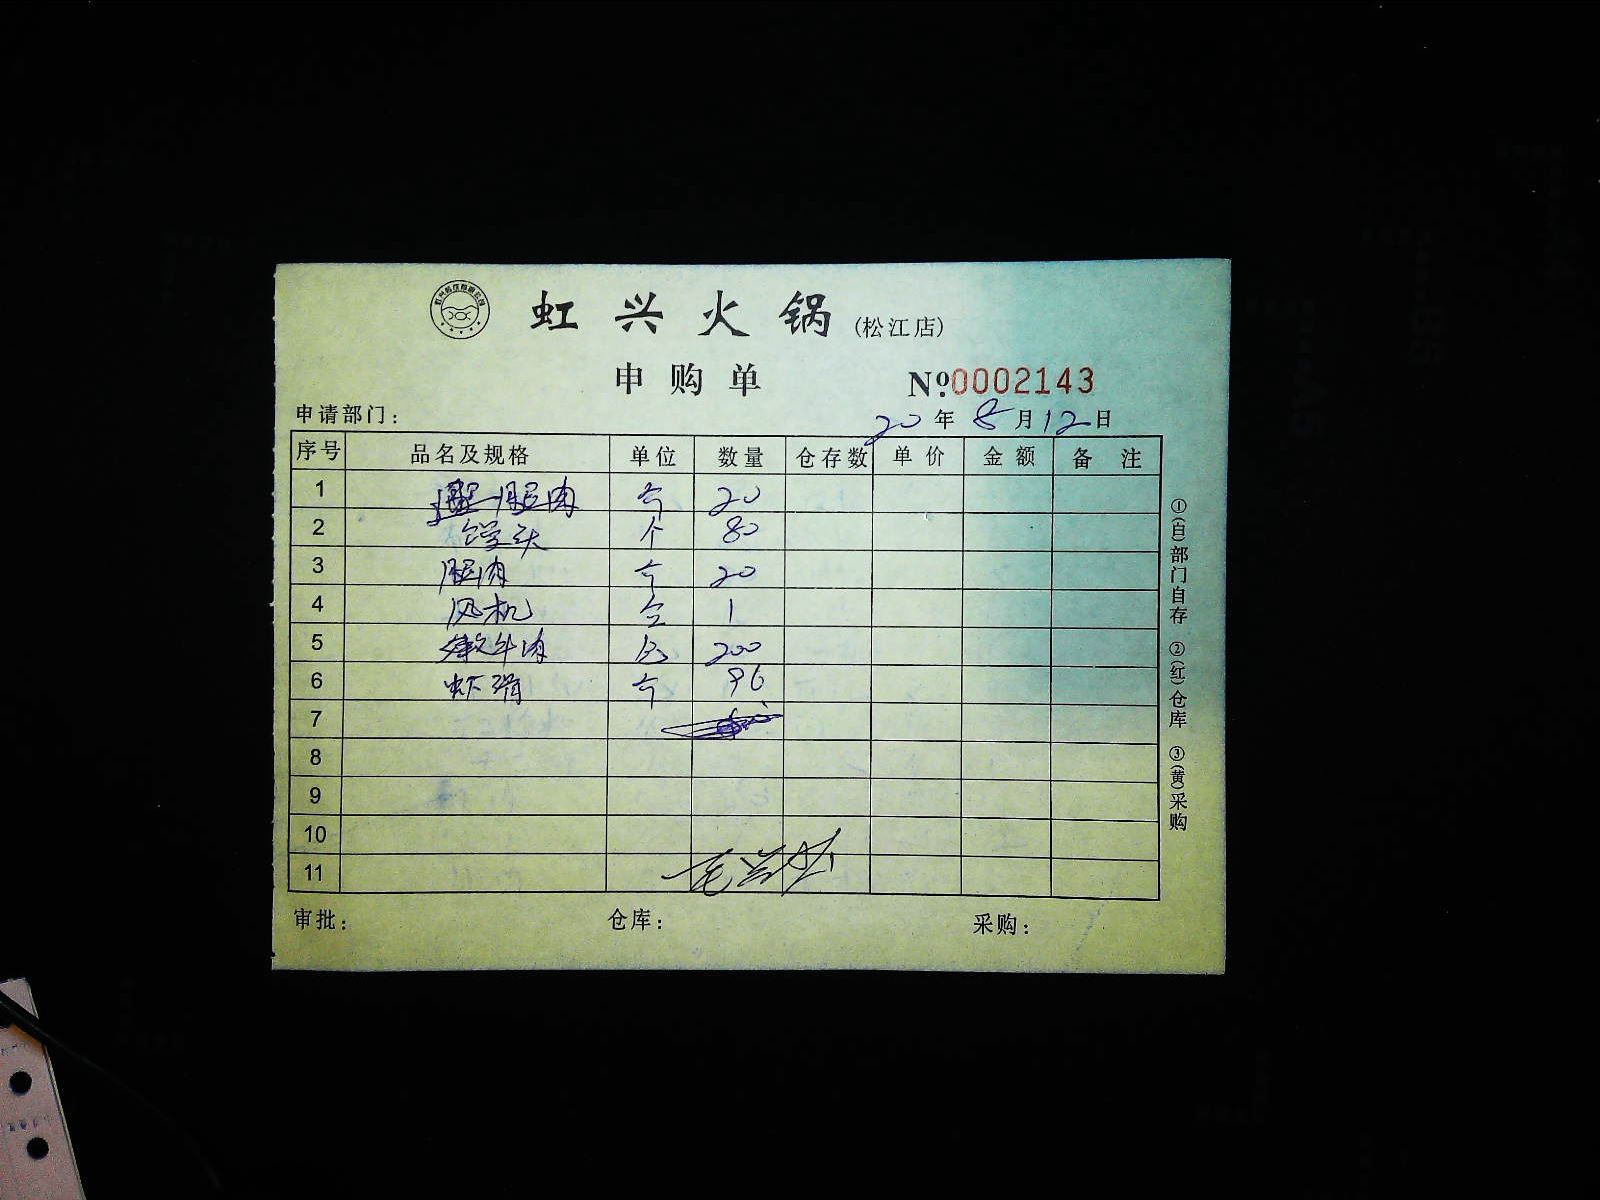 虹兴火锅(松江店)
申购单 №:0002143
申请部门: 20年8月12日
序号 品名及规格 单位 数量 仓存数 单价 金额 备注
1 腿肉 个 20
2 馒头 个 80
3 腿肉 个 20
4 风机 台 1
5 嫩牛肉 包 200
6 虾滑 个 96
7
8
9
10
11
审批: 仓库: 采购:
①(白)部门自存 ②(红)仓库 ③(黄)采购